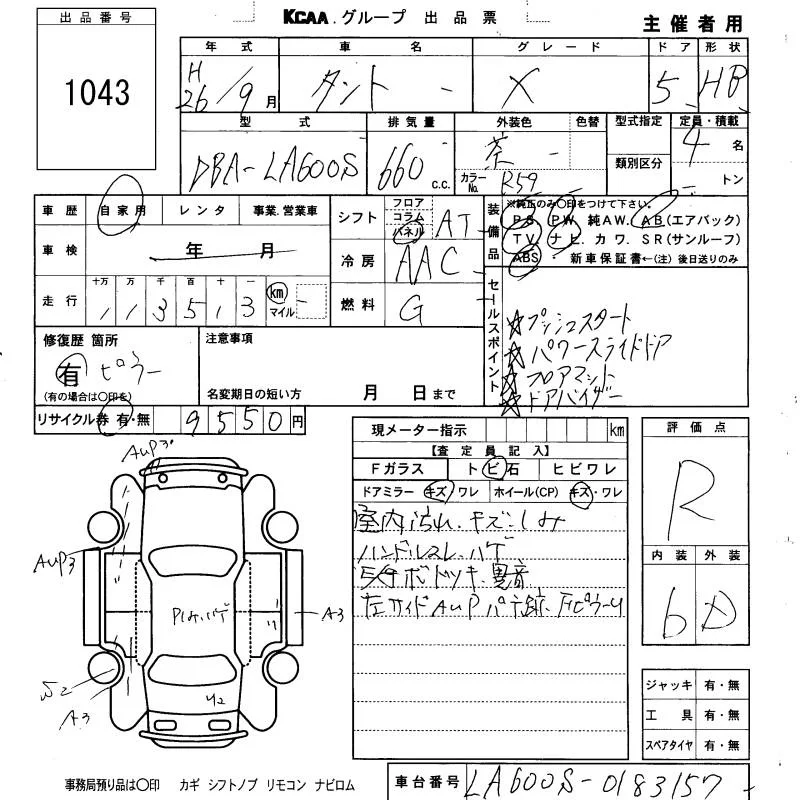 出品番号
1043
KCAA.グループ 出品票
主催者用
年式 車名 グレード ドア 形状
H26/9月 タント - X 5 HB
型式 排気量 外装色 色替 型式指定 定員・積載
DBA-LA600S 660 c.c. 茶 - カラーNo. R59 類別区分 4名 トン
車歴 自家用 レンタ 事業.営業車
車検 年 月
走行 十万 万 千 百 十 一 km マイル
1 1 3 5 1 3
シフト フロア コラム パネル AT
冷房 AAC
燃料 G
装備品 ※純正のみ○印をつけて下さい。
PS. PW. 純AW. AB.(エアバック)
TV. ナビ. カワ. SR(サンルーフ)
ABS. 新車保証書←(注)後日送りのみ
セールスポイント
☆プッシュスタート
☆パワースライドドア
☆フロアマット
☆ドアバイザー
修復歴 箇所
有 ピラー
(有の場合は○印を)
注意事項
名変期日の短い方 月 日まで
リサイクル券 有・無 9550円
現メーター指示 km
【査定員記入】
Fガラス トビ石 ヒビワレ
ドアミラー キズ/ワレ ホイール(CP) キズ・ワレ
室内汚れ.キズ.しみ
ハンドルスレ.ハゲ
左サイドAUP パテ跡.
評価点
R
内装 外装
6 D
AUP3
AUP3
A3
S2
A3
U2
ジャッキ 有・無
工具 有・無
スペアタイヤ 有・無
事務局預り品は○印 カギ シフトノブ リモコン ナビロム
車台番号 LA600S-0183157